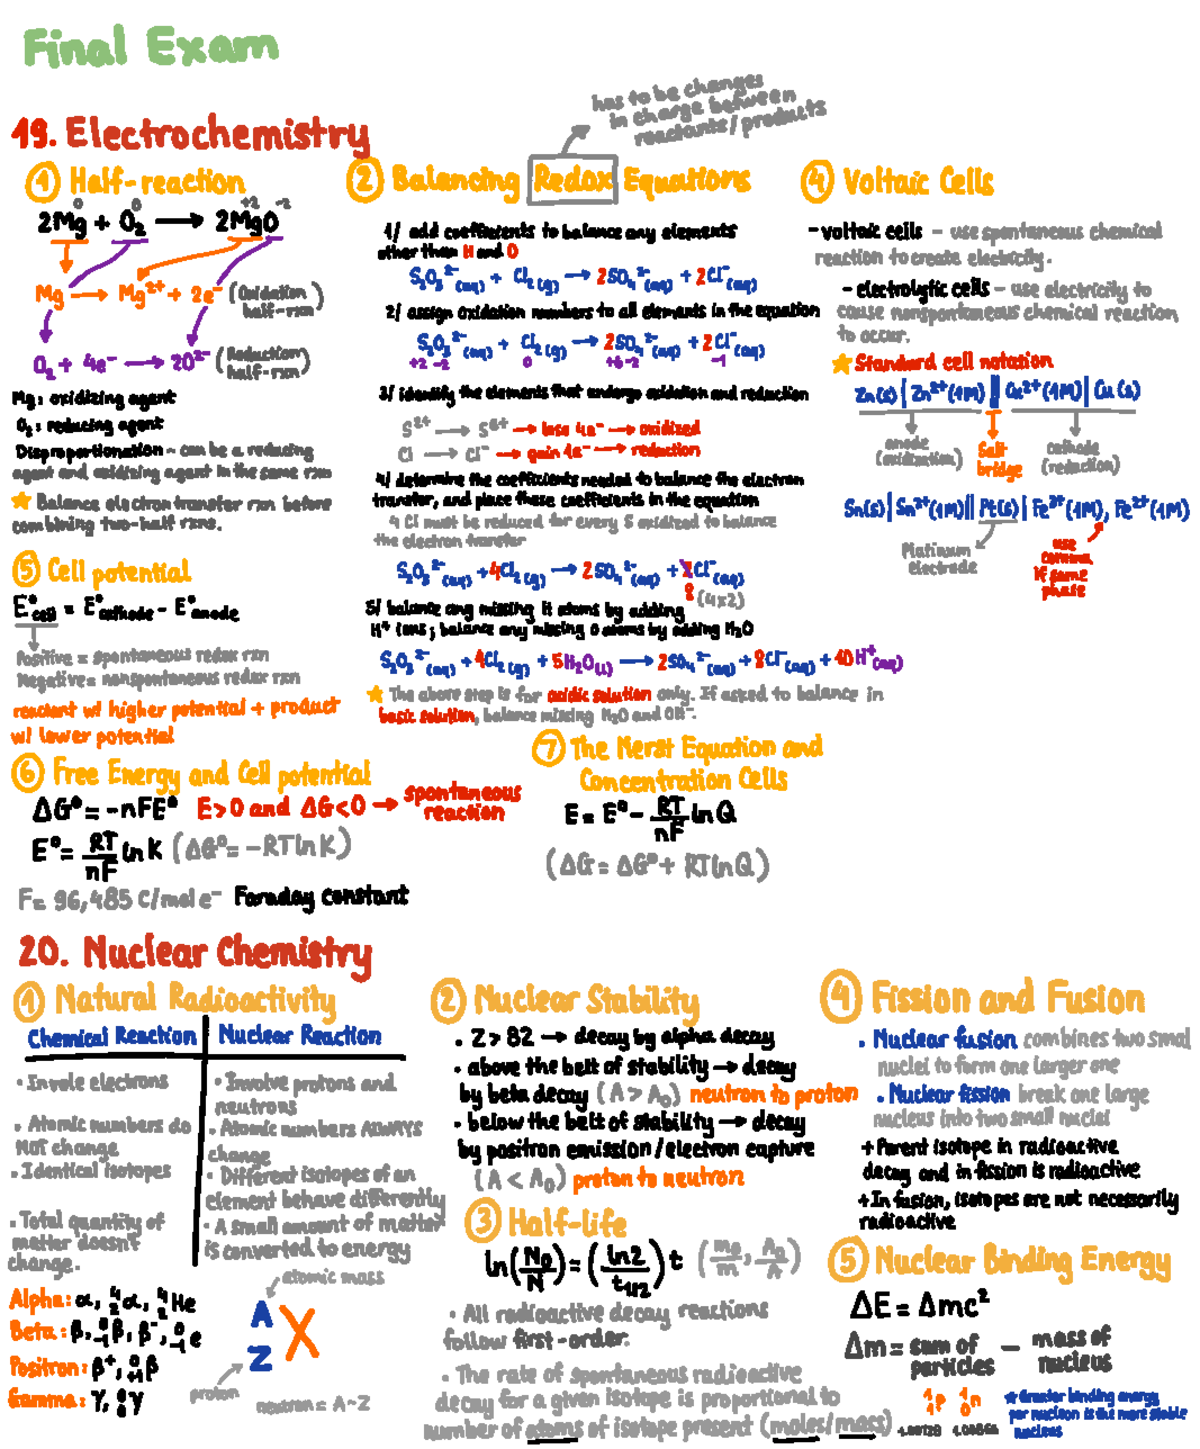 Final Exam
has to be changes
in charge between
reactants/products
19. Electrochemistry
① Half-reaction
0 0 +2 -2
2Mg + O₂ ⟶ 2MgO
Mg ⟶ Mg²⁺ + 2e⁻ (Oxidation
half-rxn)
O₂ + 4e⁻ ⟶ 2O²⁻ (Reduction
half-rxn)
Mg: oxidizing agent
O₂: reducing agent
Disproportionation - can be a reducing
agent and oxidizing agent in the same rxn
★ Balance electron transfer rxn before
combining two-half rxns.
② Balancing Redox Equations
1/ add coefficients to balance any elements
other than H and O
S₂O₃²⁻(aq) + Cl₂(g) ⟶ 2SO₄²⁻(aq) + 2Cl⁻(aq)
2/ assign oxidation numbers to all elements in the equation
S₂O₃²⁻(aq) + Cl₂(g) ⟶ 2SO₄²⁻(aq) + 2Cl⁻(aq)
+2 -2 0 +6 -2 -1
3/ identify the elements that undergo oxidation and reduction
S²⁺ ⟶ S⁶⁺ → lose 4e⁻ → oxidized
Cl ⟶ Cl⁻ → gain 1e⁻ → reduction
4/ determine the coefficients needed to balance the electron
transfer, and place these coefficients in the equation
4 Cl must be reduced for every S oxidized to balance
the electron transfer
S₂O₃²⁻(aq) + 4Cl₂(g) ⟶ 2SO₄²⁻(aq) + 2Cl⁻(aq)
8 (4x2)
5/ balance any missing H atoms by adding
H⁺ ions; balance any missing O atoms by adding H₂O
S₂O₃²⁻(aq) + 4Cl₂(g) + 5H₂O(l) ⟶ 2SO₄²⁻(aq) + 8Cl⁻(aq) + 10H⁺(aq)
★ The above step is for acidic solution only. If asked to balance in
basic solution, balance missing H₂O and OH⁻.
④ Voltaic Cells
- voltaic cells - use spontaneous chemical
reaction to create electricity.
- electrolytic cells - use electricity to
cause nonspontaneous chemical reaction
to occur.
★ Standard cell notation
Zn(s) | Zn²⁺(1M) || Cu²⁺(1M) | Cu(s)
anode
(oxidization)
Salt
bridge
cathode
(reduction)
Sn(s) | Sn²⁺(1M) || Pt(s) | Fe³⁺(1M), Fe²⁺(1M)
Platinum
electrode
use
comma
if same
phase
⑤ Cell potential
E°cell = E°cathode - E°anode
Positive = spontaneous redox rxn
Negative = nonspontaneous redox rxn
reactant w/ higher potential + product
w/ lower potential
⑥ Free Energy and Cell potential
ΔG° = -nFE° E>0 and ΔG<0 → spontaneous
reaction
E° = RT/nF ln K (ΔG° = -RT ln K)
F = 96,485 C/mol e⁻ Faraday constant
⑦ The Nerst Equation and
Concentration Cells
E = E° - RT/nF ln Q
(ΔG = ΔG° + RT ln Q)
20. Nuclear Chemistry
① Natural Radioactivity
Chemical Reaction
• Invole electrons
• Atomic numbers do
NOT change
• Identical isotopes
• Total quantity of
matter doesn't
change.
Nuclear Reaction
• Involve protons and
neutrons
• Atomic numbers ALWAYS
change
• Different isotopes of an
element behave differently
• A small amount of matter
is converted to energy
Alpha: α, ⁴₂α, ⁴₂He
Beta: β, ⁰₋₁β, β⁻, ⁰₋₁e
Positron: β⁺, ⁰₊₁β
Gamma: γ, ⁰₀γ
atomic mass
A
Z X
proton
neutron = A-Z
② Nuclear Stability
• Z > 82 → decay by alpha decay
• above the belt of stability → decay
by beta decay (A > A₀) neutron to proton
• below the belt of stability → decay
by positron emission/electron capture
(A < A₀) proton to neutron
③ Half-life
ln(N₀/N) = (ln2/t₁/₂) t (m₀/m, A₀/A)
• All radioactive decay reactions
follow first-order.
• The rate of spontaneous radioactive
decay for a given isotope is proportional to
number of atoms of isotope present (moles/mass)
④ Fission and Fusion
• Nuclear fusion combines two small
nuclei to form one larger one
• Nuclear fission break one large
nucleus into two small nuclei
+ Parent isotope in radioactive
decay and in fission is radioactive
+ In fusion, isotopes are not necessarily
radioactive
⑤ Nuclear Binding Energy
ΔE = Δmc²
Δm = sum of particles - mass of nucleus
¹₁p ¹₀n
1.00728 1.00866
★ Greater binding energy
per nucleon is the more stable
nucleus